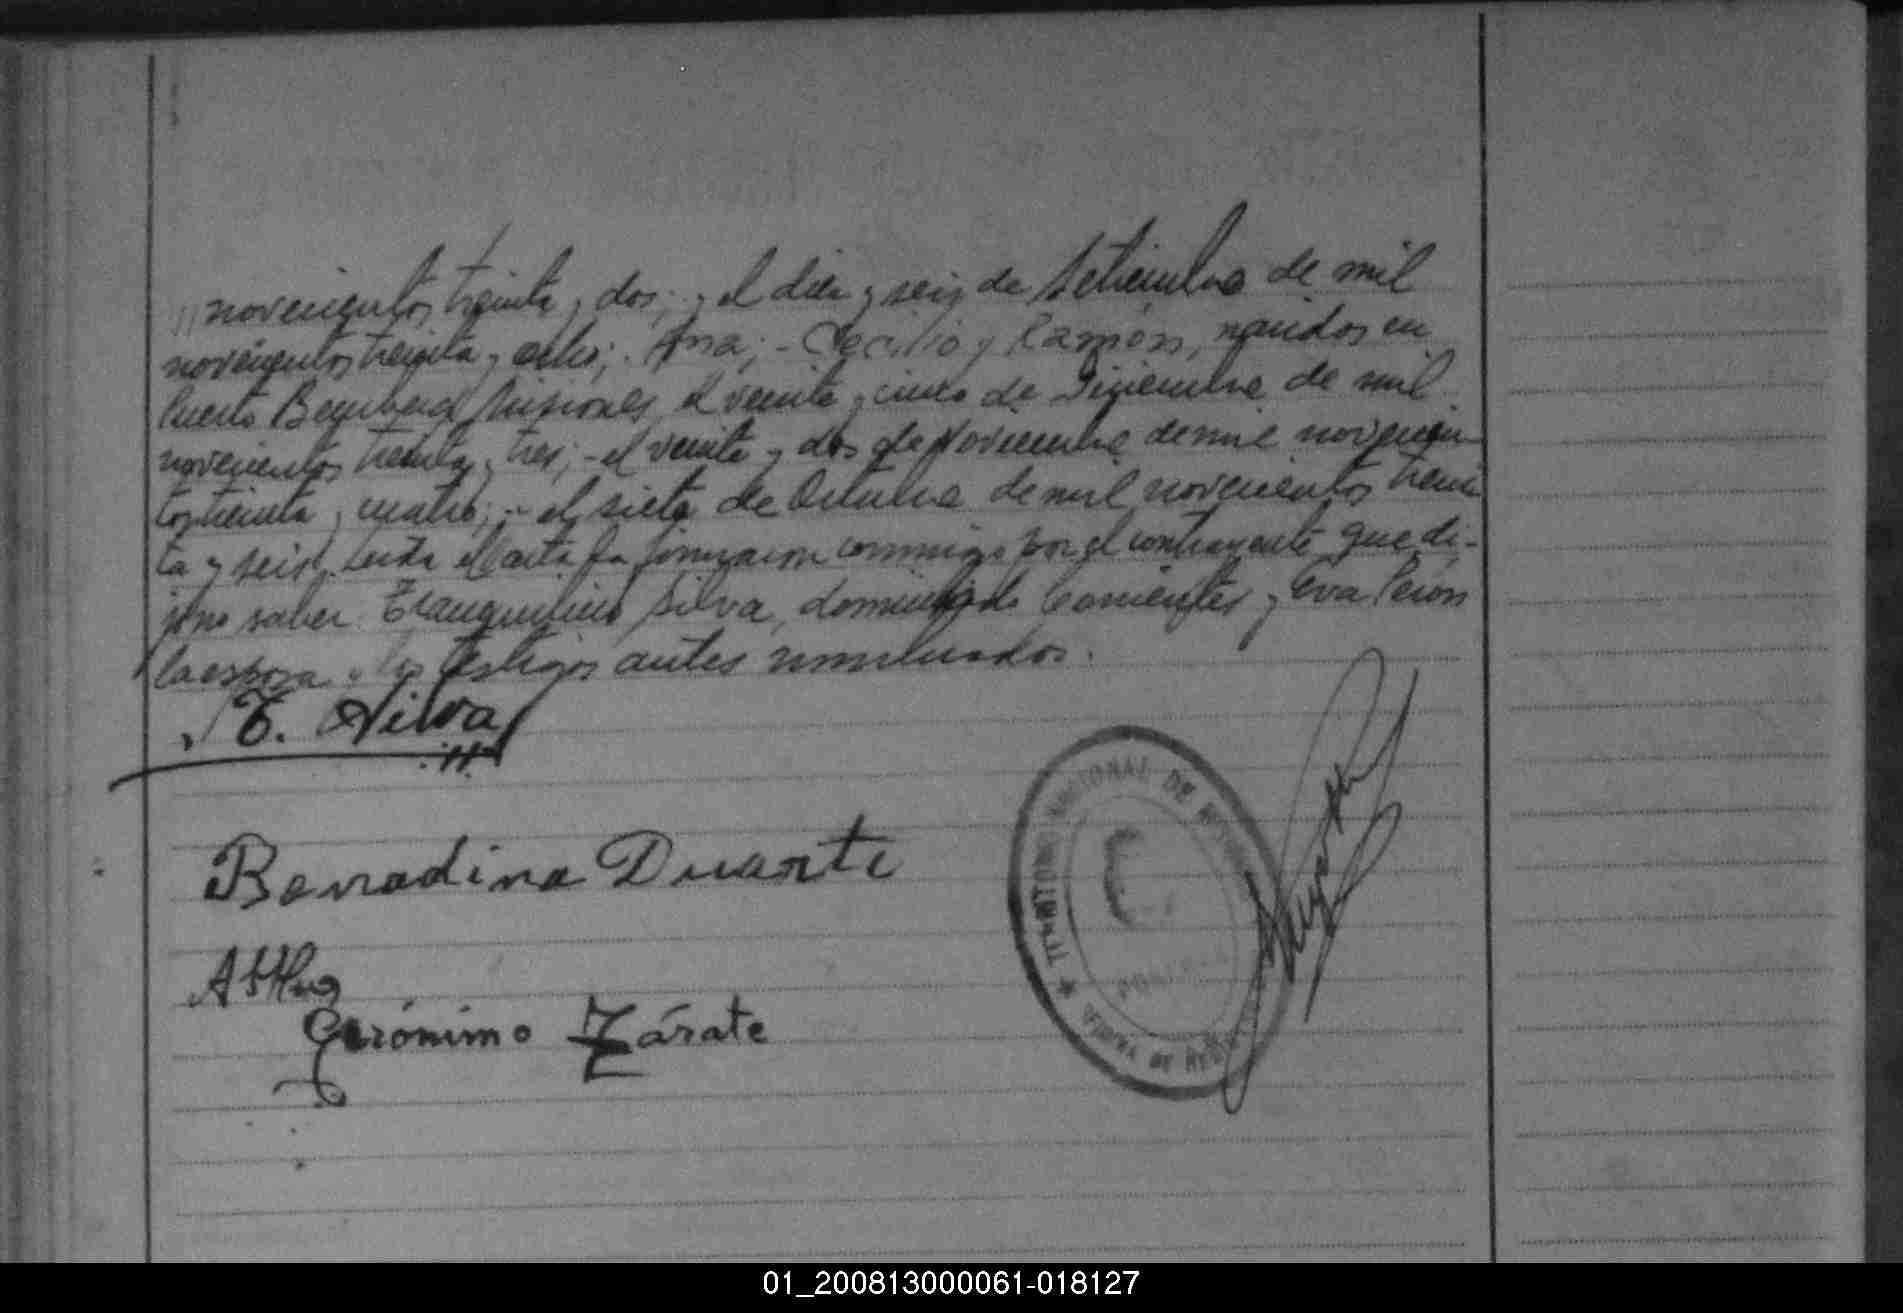 novecientos treinta y dos; y el diez y seis de Setiembre de mil
novecientos treinta y ocho; Ana; - Cecilio y Ramón, nacidos en
Puerto Bemberg Misiones el veinte y cinco de Diciembre de mil
novecientos treinta y tres; - el veinte y dos de Noviembre de mil novecien
tos treinta y cuatro; - el siete de Octubre de mil novecientos trein
ta y seis. Leída el acta la firmaron conmigo por el contrayente que di-
jo no saber Tranquilino Silva, domiciliado Corrientes y Eva Perón
la esposa y los testigos antes nombrados.
T. Silva
Bernadina Duarte
Gerónimo Zárate
TERRITORIO NACIONAL DE
OFICINA DE
01_200813000061-018127